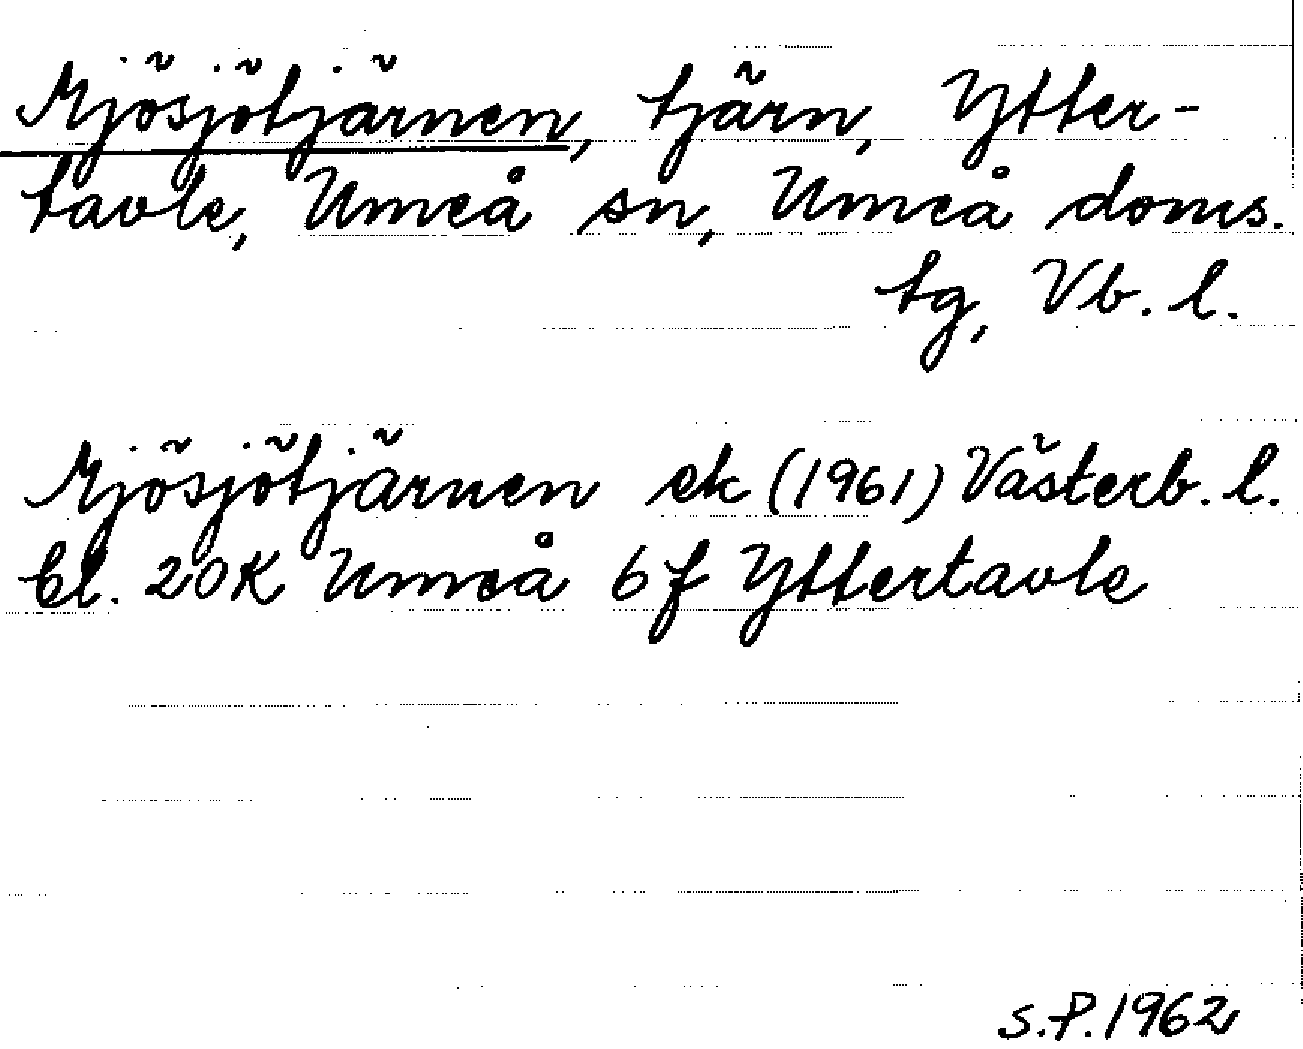 Mjösjötjärnen, tjärn, Ytter-
tavle, Umeå sn, Umeå doms.
tg, Vb. l.
Mjösjötjärnen ek (1961) Västerb. l.
bl. 20K Umeå 6f Yttertavle
S.P. 1962